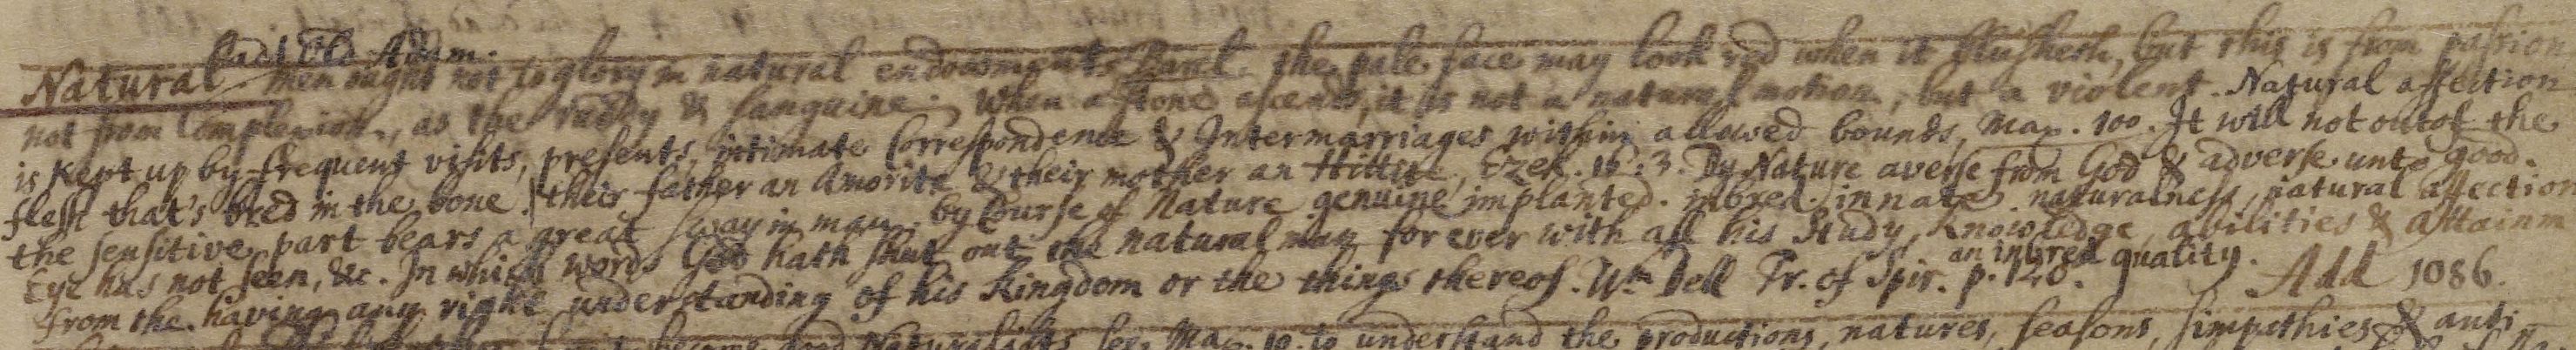 add Old Adam.
Natural men ought not to glory in natural endowments. Paul. the pale face may look red when it blusheth, but this is from passion
not from Complexion, as the ruddy & sanguine. When a stone ascends, it is not a natural motion, but a violent. Natural affection
is kept up by frequent visits, presents, intimate Correspondence & Intermarriages within allowed bounds, Max. 100. It will not out of the
flesh that's bred in the bone. their father an Amorite & their mother an Hittite, Ezek. 16:3. By Nature averse from God & adverse unto good.
the sensitive part bears a great sway in man. by Course of Nature genuine implanted. inbred. innate naturalness, natural affection
Eye has not seen, &c. In which words God hath shut out the natural man for ever with all his Study, Knowledge, abilities & attainm
an inbred quality.
from the having any right understanding of his Kingdom or the things thereof. Wm Dell Tr. of Spir. p. 120. Add 1086.
good Naturalists Max. 10. to understand the productions, natures, seasons, simpathies & anti